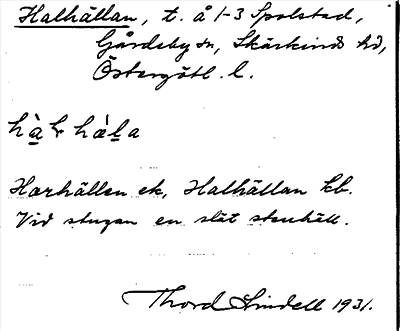 Halhällan, t. å 1-3 Spolstad,
Gårdeby sn, Skärkinds hd,
Östergötl. l.
Harhällen ek, Halhällan kb.
Vid stugan en slät stenhäll.
Thord Lindell 1931.